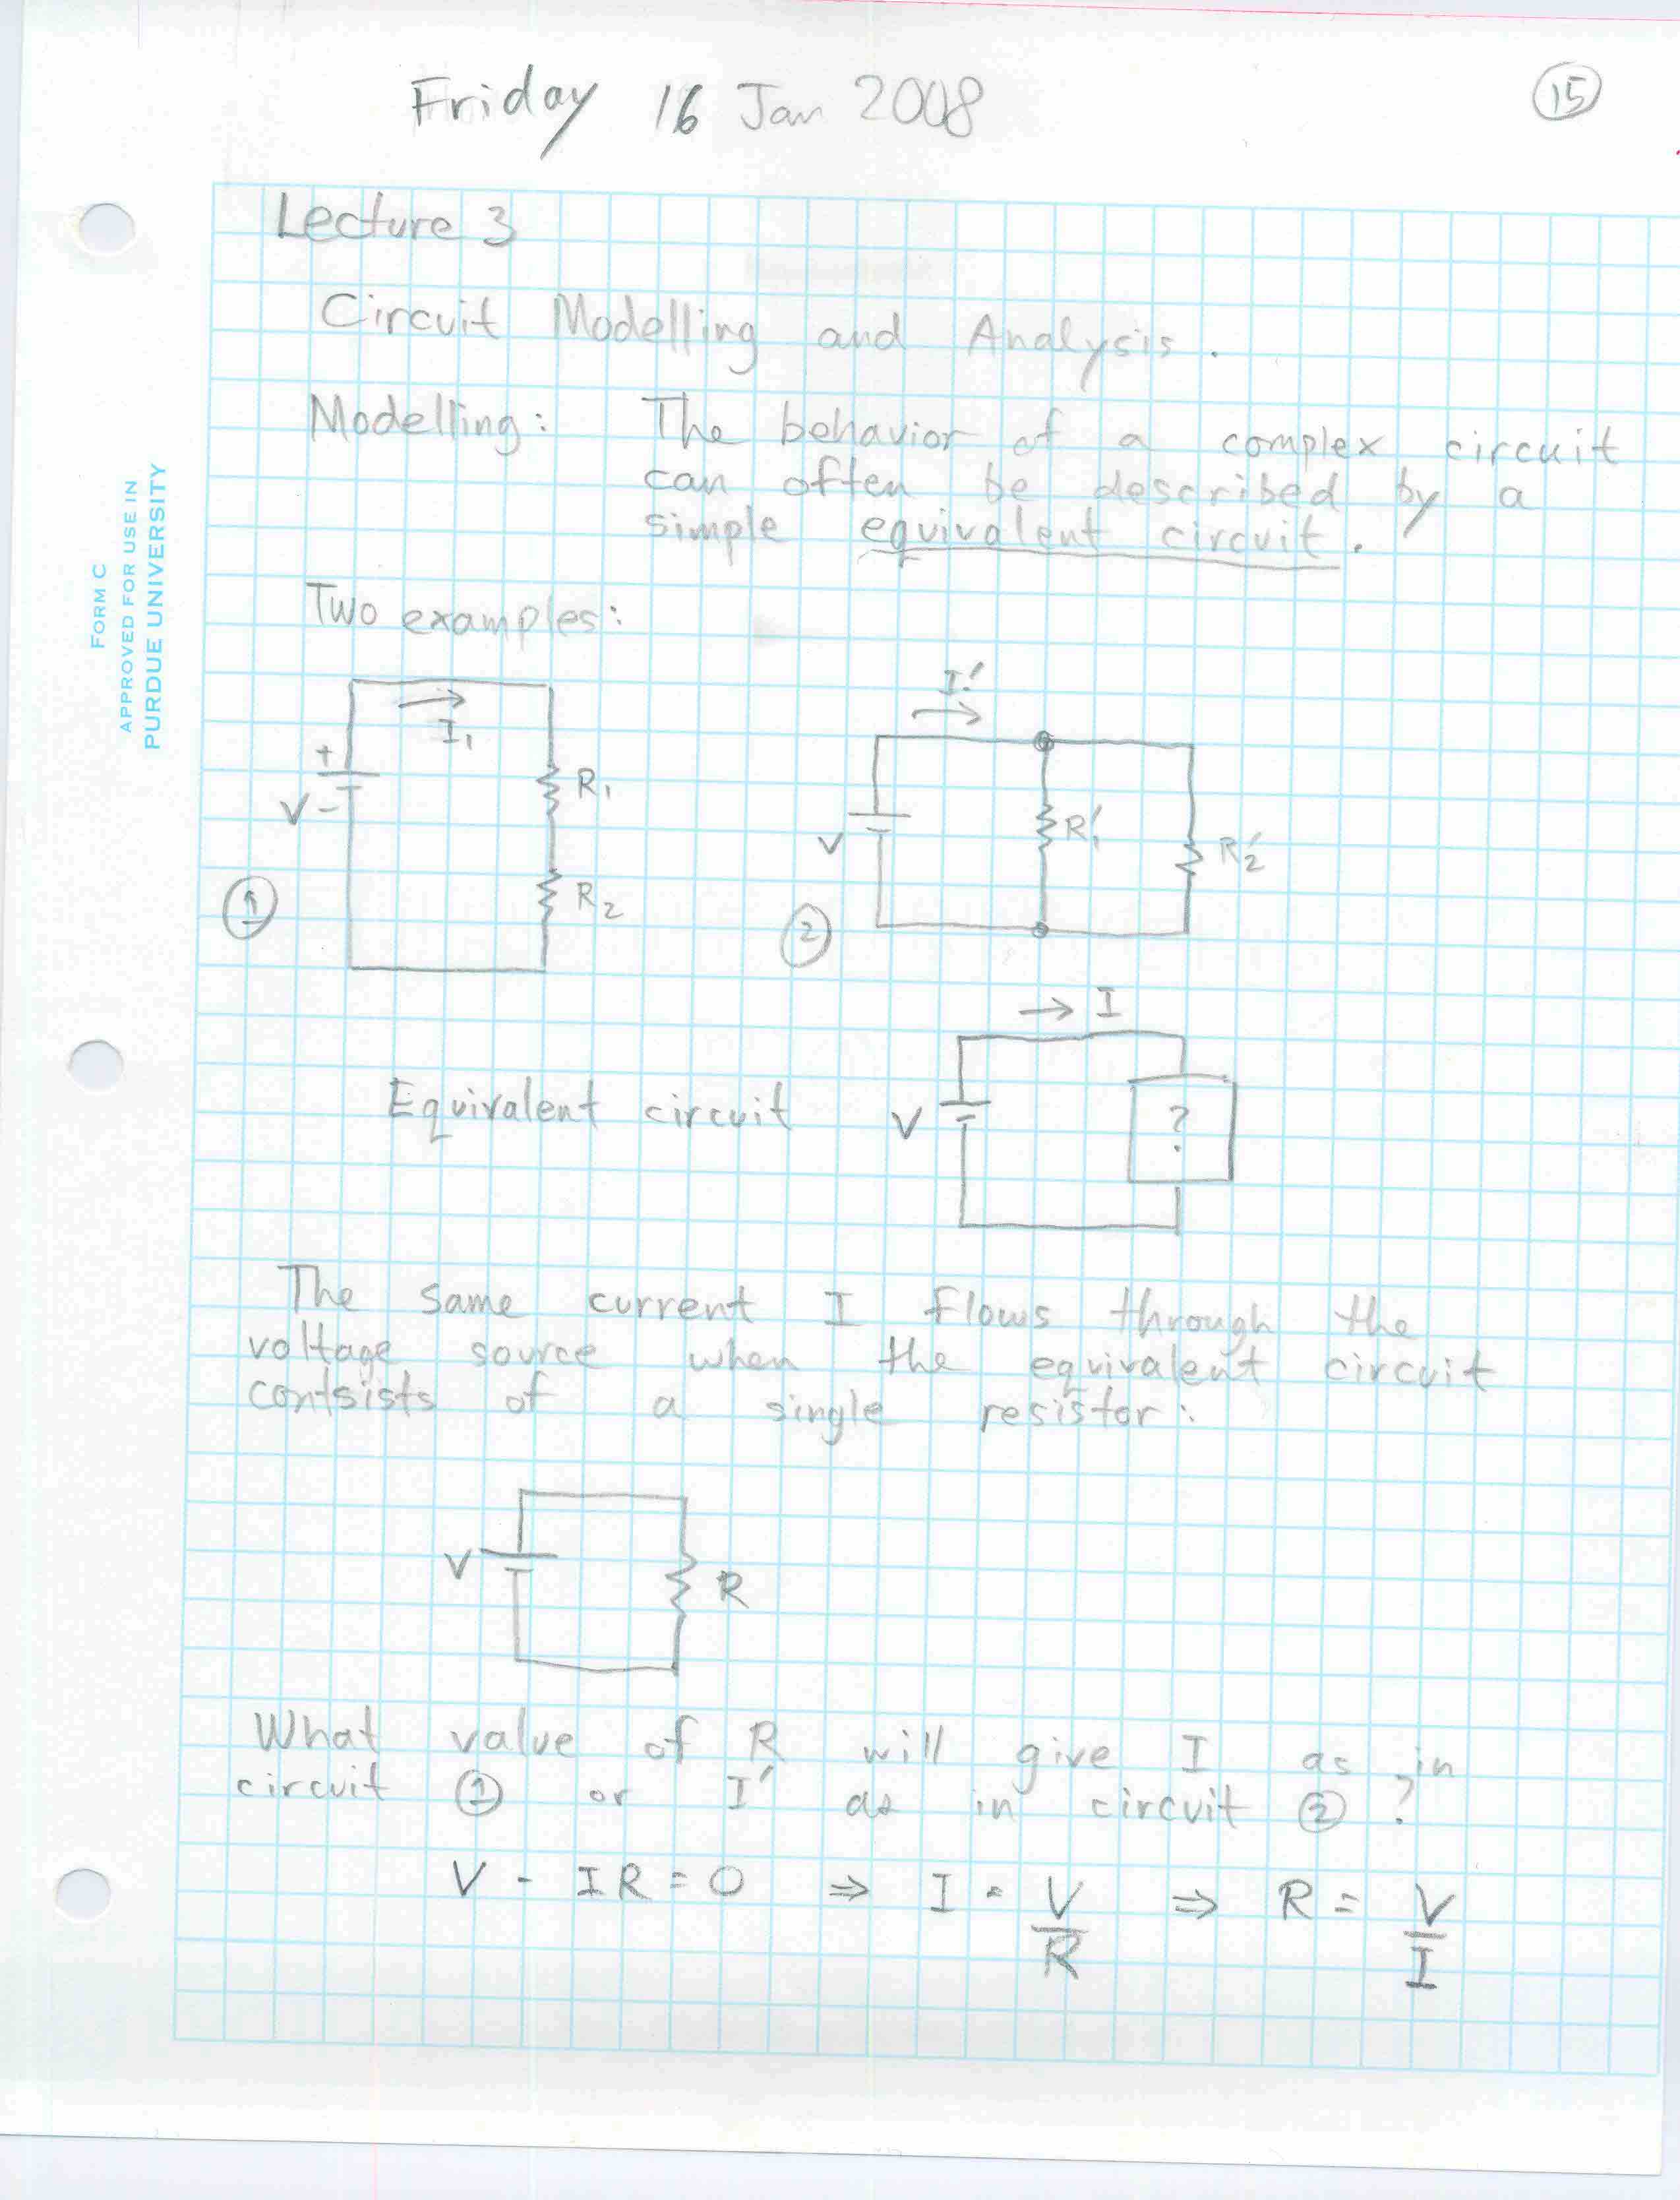 Friday 16 Jan 2008
15
Lecture 3
Circuit Modelling and Analysis.
Modelling: The behavior of a complex circuit
can often be described by a
simple equivalent circuit.
FORM C
APPROVED FOR USE IN
PURDUE UNIVERSITY
Two examples:
I₁
+
V -
R₁
R₂
①
I'
V
R₁'
R₂'
②
→ I
Equivalent circuit
V
?
The same current I flows through the
voltage source when the equivalent circuit
contsists of a single resistor:
V
R
What value of R will give I as in
circuit ① or I' as in circuit ②?
V - IR = 0 ⇒ I = V/R ⇒ R = V/I